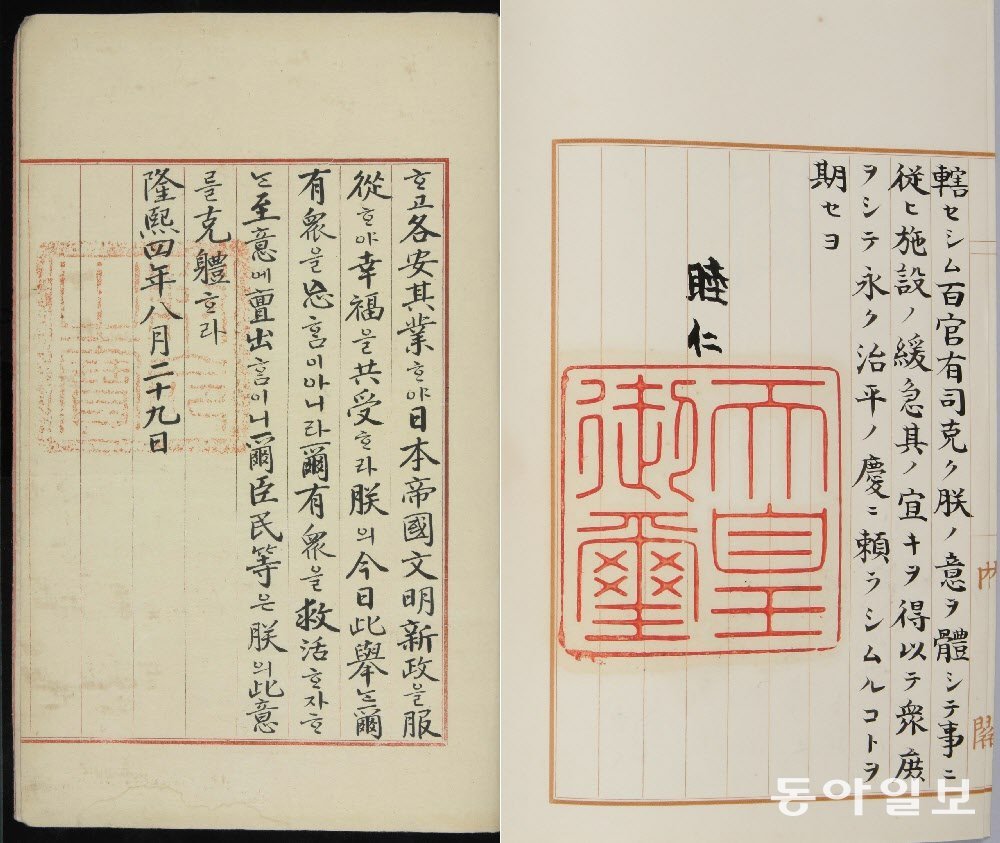 ᄒᆞ고各安其業ᄒᆞ야日本帝國文明新政을服
從ᄒᆞ야幸福을共受ᄒᆞ라朕의今日此擧ᄂᆞᆫ爾
有衆을忘ᄒᆞᆷ이아니라爾有衆을救活ᄒᆞ자ᄒᆞ
ᄂᆞᆫ至意에亶出ᄒᆞᆷ이니爾臣民等은朕의此意
를克體ᄒᆞ라
隆熙四年八月二十九日
轄セシム百官有司克ク朕ノ意ヲ體シテ事ニ
従ヒ施設ノ緩急其ノ宜キヲ得以テ衆庶
ヲシテ永ク治平ノ慶ニ頼ラシムルコトヲ
期セヨ
睦仁
天皇
御璽
内閣
동아일보